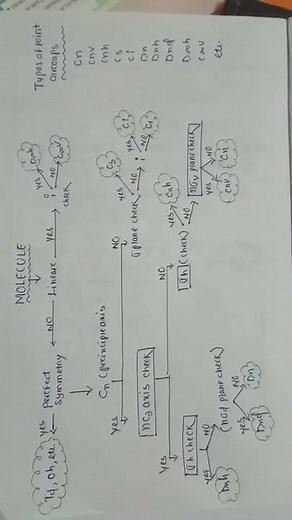 MOLECULE
Linear
NO
YES
Perfect
symmetry
Yes
Td, Oh, etc.
i
check
Yes
NO
D∞h
C∞v
Cn (principle axis
YES
NO
σ plane check
yes
NO
Cs
i
Yes
NO
Ci
C1
nC2 axis check
Yes
NO
σh (check)
Yes
NO
Cnh
nσv plane check
Yes
NO
Cnv
Cn
σh check
Yes
NO
Dnh
(nσd plane check)
Yes
NO
Dnd
Dn
Types of point
Groups
Cn
Cnv
Cnh
Cs
Ci
Dn
Dnh
Dnd
D∞h
C∞v
etc.